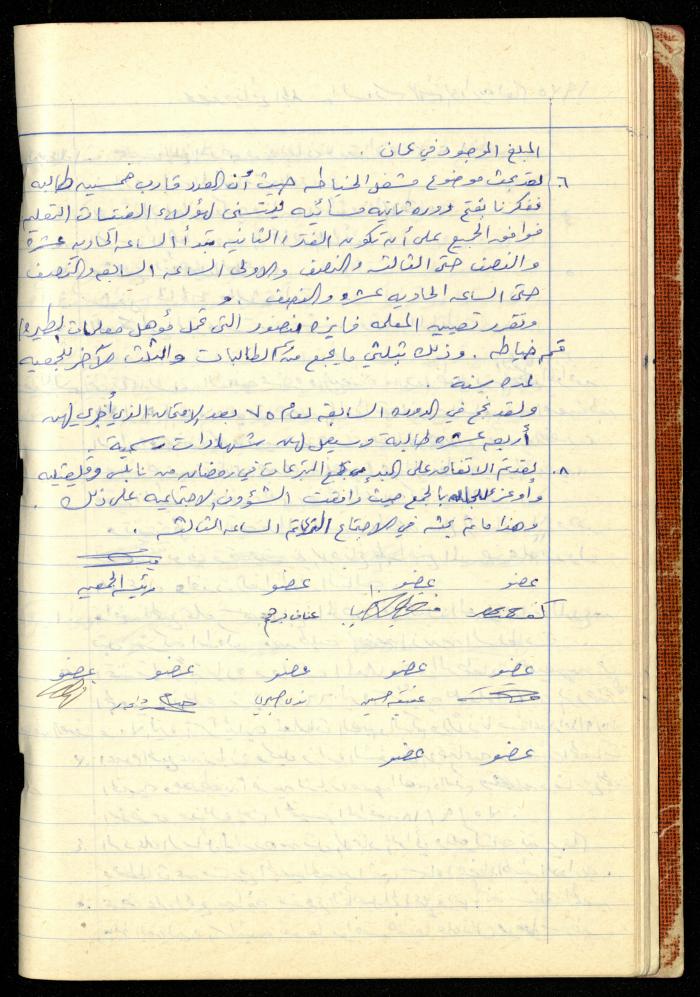 المبلغ الموجود في عمان .
٦. لقد بحث موضوع مشغل الخياطه حيث أن العدد قارب خمسين طالبه
ففكرنا بفتح دوره ثانيه مسائيه ليتسنى لهؤلاء الفتيات التعليم
فوافق الجميع على أن تكون الفتره الثانيه تبدأ الساعه الحاديه عشرة
والنصف حتى الثالثه والنصف والاولى الساعه السابعه والنصف
حتى الساعه الحاديه عشره والنصف . و
وتقرر تعيين المعلمه فايزه منصور التي تحمل مؤهل معلمات
قسم خياطه . وذلك بثلثي ما يجمع من الطالبات والثلث الآخر للجمعيه
لمدة سنة .
ولقد نجح في الدوره السابقه لعام ٧٥ بعد الامتحان الذي أُجري لهن
أربعه عشره طالبة وسيعمل لهن شهادات رسمية
٨. لقد تم الاتفاق على البدء بجمع التبرعات في رمضان من نابلس وقلقيليه
وأوعز للجان بالجمع حيث وافقت الشؤون الاجتماعيه على ذلك .
وهذا ما تم بحثه في الاجتماع الساعه الثالثه .
عضو عضو عضو رئيسة الجمعيه
عنان
عضو عضو عضو عضو عضو
ندى صبري
عضو عضو